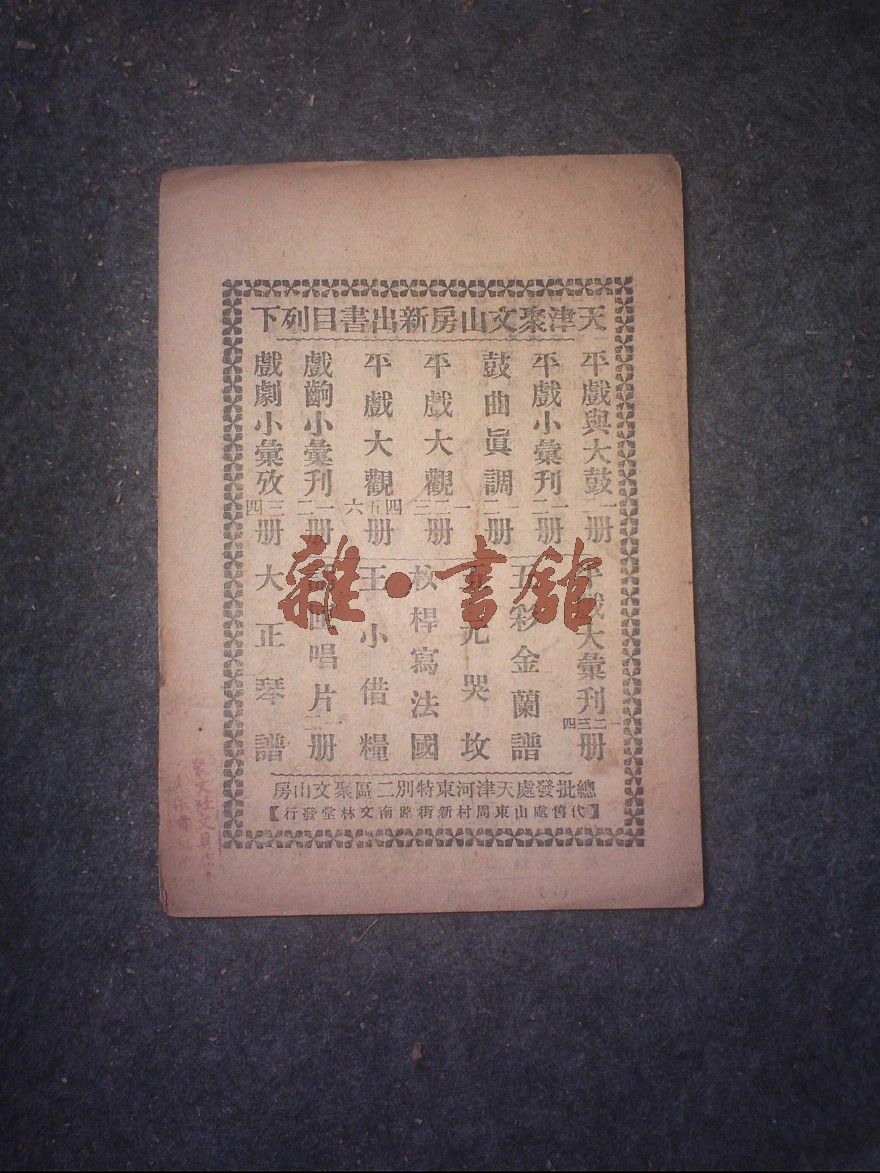 天津聚文山房新出書目列下
平戲與大鼓一二册
平戲小彙刊一二册
鼓曲眞調一二册
平戲大觀一二三册
平戲大觀四五六册
戲齣小彙刊一二册
戲劇小彙攷三四册
平戲大彙刊一二三四册
五彩金蘭譜
元哭坟
杈桿寫法國
王小借糧
唱片一二册
大正琴譜
總批發處天津河東特別二區聚文山房
【代售處山東周村新街路南文林堂發行】
雜·書舘